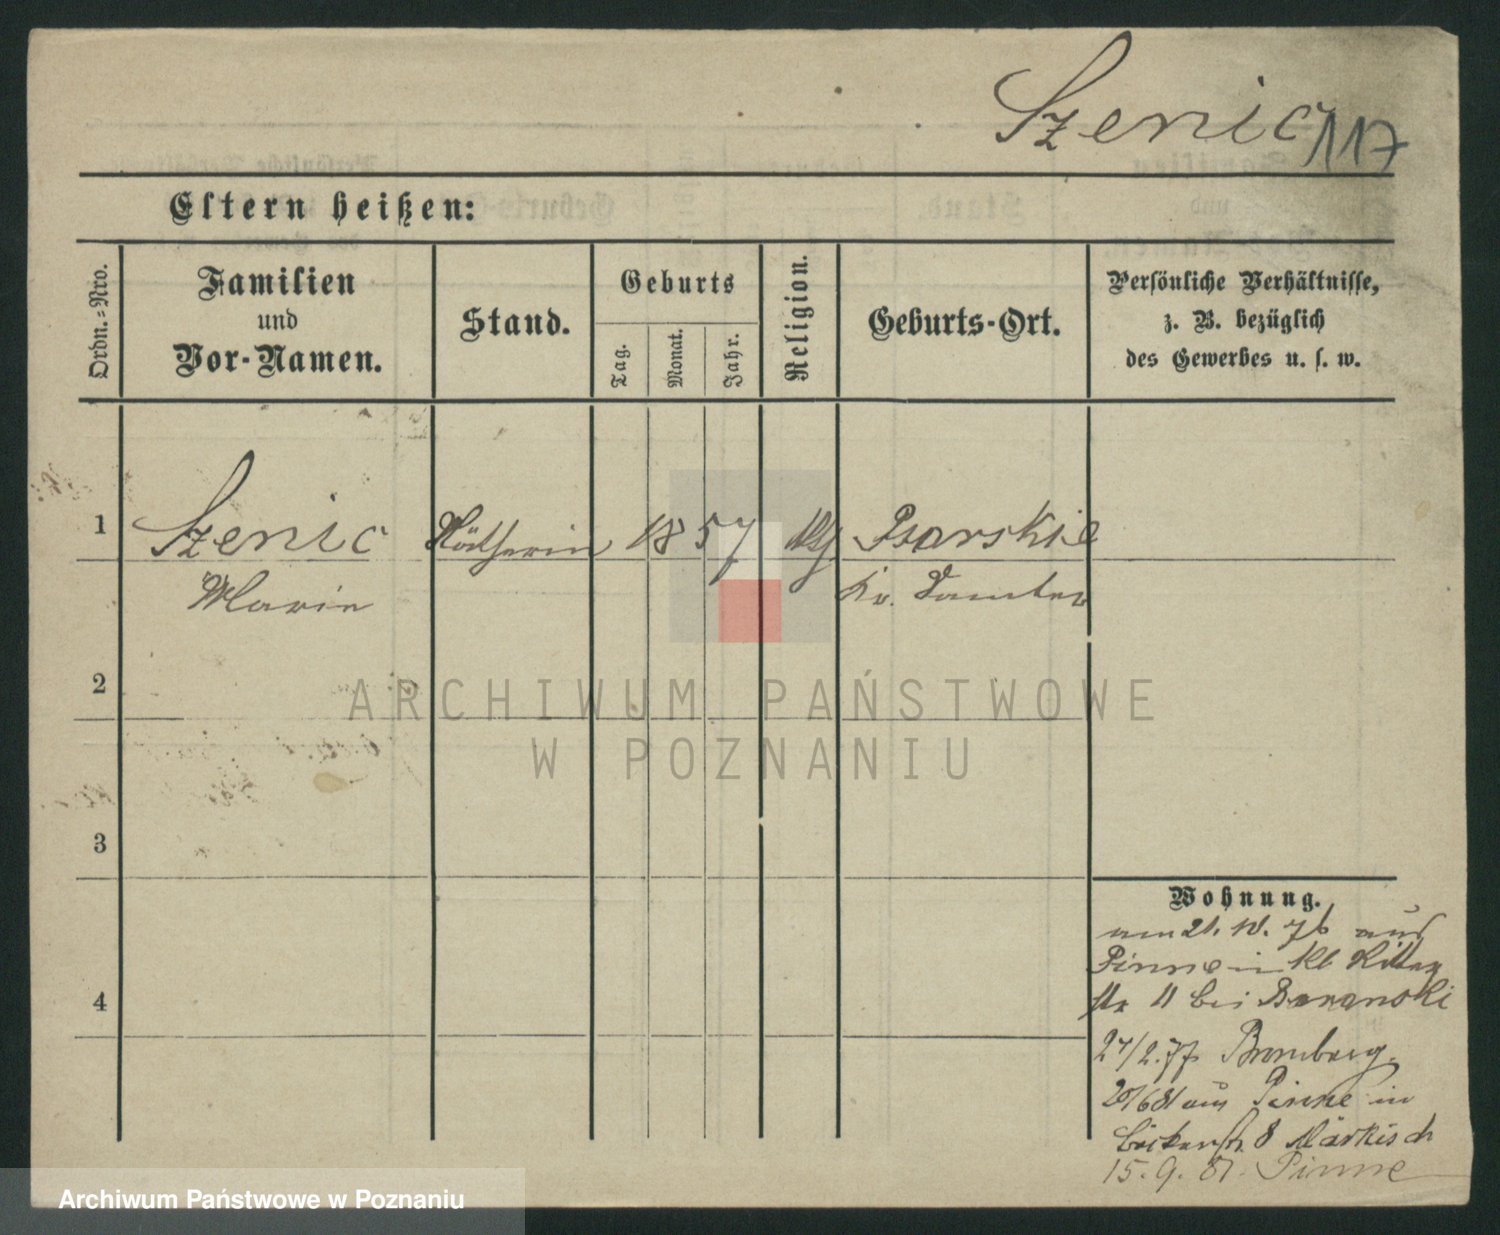 Szenic 117
Eltern heißen:
Ordn.=Nro.
Familien
und
Vor-Namen.
Stand.
Geburts
Tag.
Monat.
Jahr.
Religion.
Geburts-Ort.
Persönliche Verhältnisse,
z. B. bezüglich
des Gewerbes u. s. w.
1 Szenic Nätherin 18 57 Psarskie
Marie Kr. Samter
2
3
4
ARCHIWUM PAŃSTWOWE
W POZNANIU
Wohnung.
21. 10. 76 aus
Pinne in Kl Ritter
str 11 bei Baranski
27/2.77 Bromberg.
20/6 81 aus Pinne in
Bäckerstr. 8 Märkisch
15. 9. 81. Pinne
Archiwum Państwowe w Poznaniu